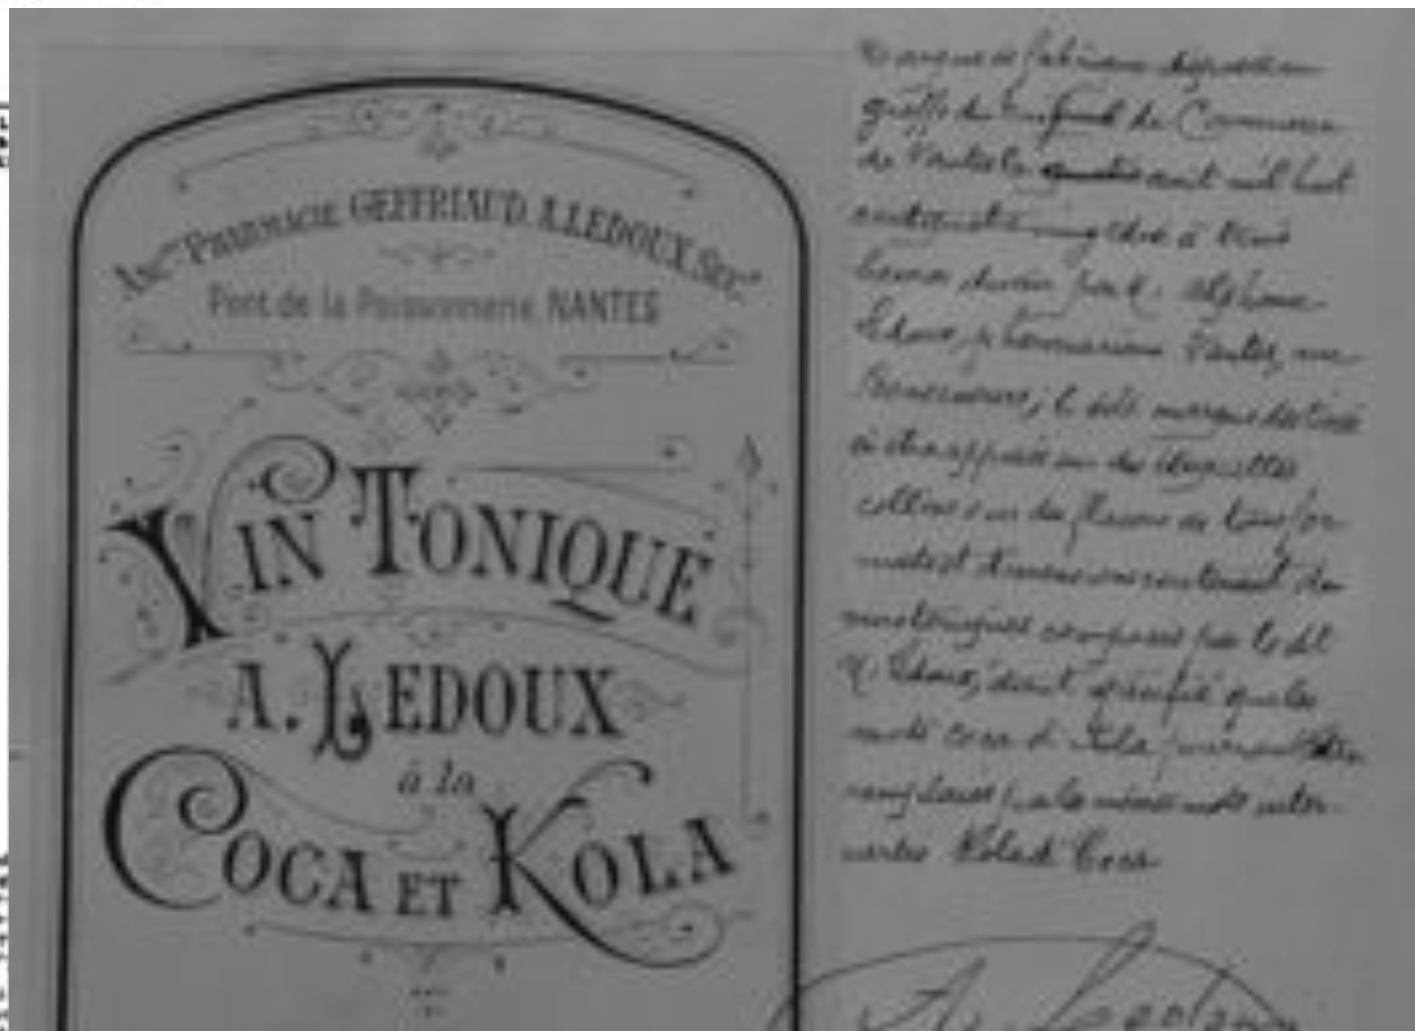 Anc.ne PHARMACIE GEFFRIAUD. A. LEDOUX, Succr
Pont de la Poissonnerie NANTES
VIN TONIQUE
A. LEDOUX
à la
COCA ET KOLA
Marque de fabrique déposée au
greffe du Tribunal de Commerce
de Nantes le août mil huit
cent à trois
heures par M. Alphonse
Ledoux, pharmacien à Nantes, rue
; la dite marque destinée
à être apposée sur des étiquettes
collées sur des flacons de tous for-
mats et dimensions contenant du
vin tonique composé par le dit
M. Ledoux, étant spécifié que les
mots coca et Kola pourront être
remplacés par les mêmes mots inter-
vertis Kola et Coca